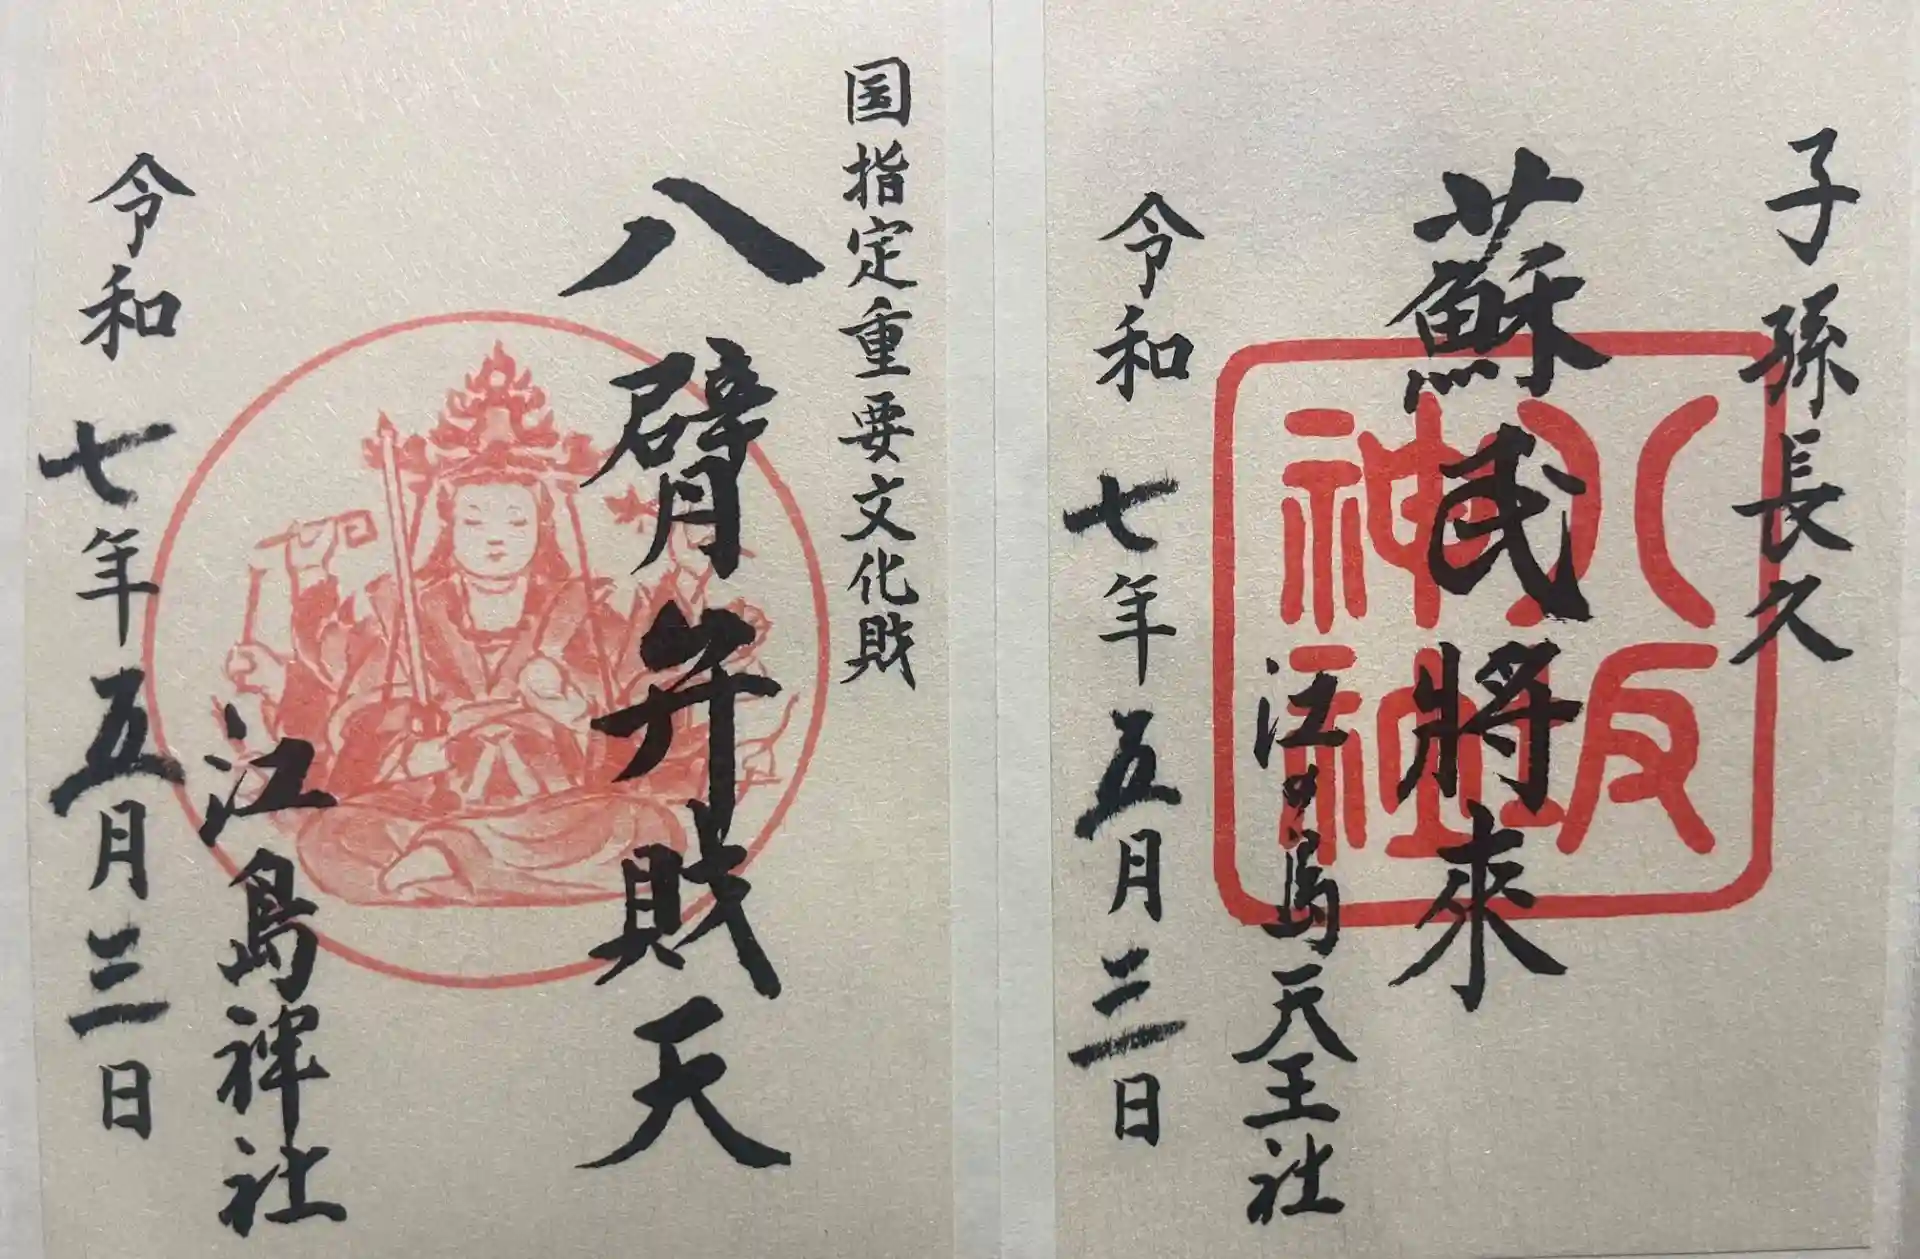 子孫長久
蘇民將来
八坂
神社
江の島天王社
令和七年五月三日
国指定重要文化財
八臂弁財天
江島神社
令和七年五月三日